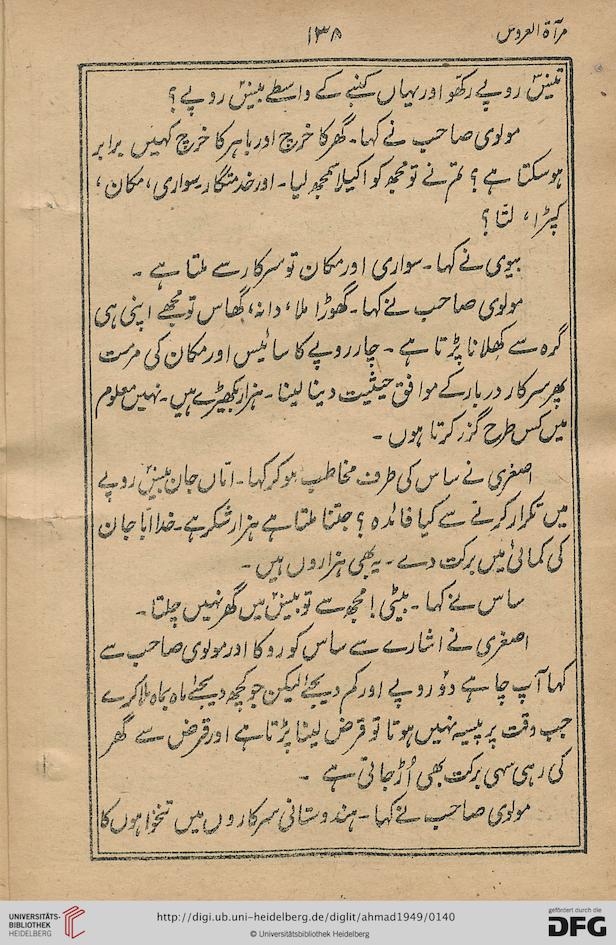 مرآۃ العروس
۱۳۸
تیس روپے رکھو اور یہاں کنبے کے واسطے بیس روپے؟
مولوی صاحب نے کہا۔ گھر کا خرچ اور باہر کا خرچ کہیں برابر
ہوسکتا ہے؟ تم نے تو مجھ کو اکیلا سمجھ لیا۔ اور خدمتگار، سواری، مکان،
کپڑا، لتّا؟
بیوی نے کہا۔ سواری اور مکان تو سرکار سے ملتا ہے۔
مولوی صاحب نے کہا۔ گھوڑا ملا، دانہ، گھاس تو مجھے اپنی ہی
گرہ سے کھلانا پڑتا ہے۔ چار روپے کا سائیس اور مکان کی مرمت
پھر سرکار دربار کے موافق حیثیت دینا لینا۔ ہزار بکھیڑے ہیں۔ نہیں معلوم
میں کس طرح گزر کرتا ہوں۔
اصغری نے ساس کی طرف مخاطب ہو کر کہا۔ اماں جان بیس روپے
میں تکرار کرنے سے کیا فائدہ؟ جتنا ملتا ہے ہزار شکر ہے۔ خدا ابّا جان
کی کمائی میں برکت دے۔ یہ بھی ہزاروں ہیں۔
ساس نے کہا۔ بیٹی! مجھ سے تو بیس میں گھر نہیں چلتا۔
اصغری نے اشارے سے ساس کو روکا اور مولوی صاحب سے
کہا آپ چاہے دو روپے اور کم دیجئے لیکن جو کچھ دیجئے ماہ بماہ ملا کرے
جب وقت پر پیسہ نہیں ہوتا تو قرض لینا پڑتا ہے اور قرض سے گھر
کی رہی سہی برکت بھی اُڑ جاتی ہے۔
مولوی صاحب نے کہا۔ ہندوستانی سرکاروں میں تنخواہوں کا
UNIVERSITÄTS-
BIBLIOTHEK
HEIDELBERG
http://digi.ub.uni-heidelberg.de/diglit/ahmad1949/0140
© Universitätsbibliothek Heidelberg
gefördert durch die
DFG